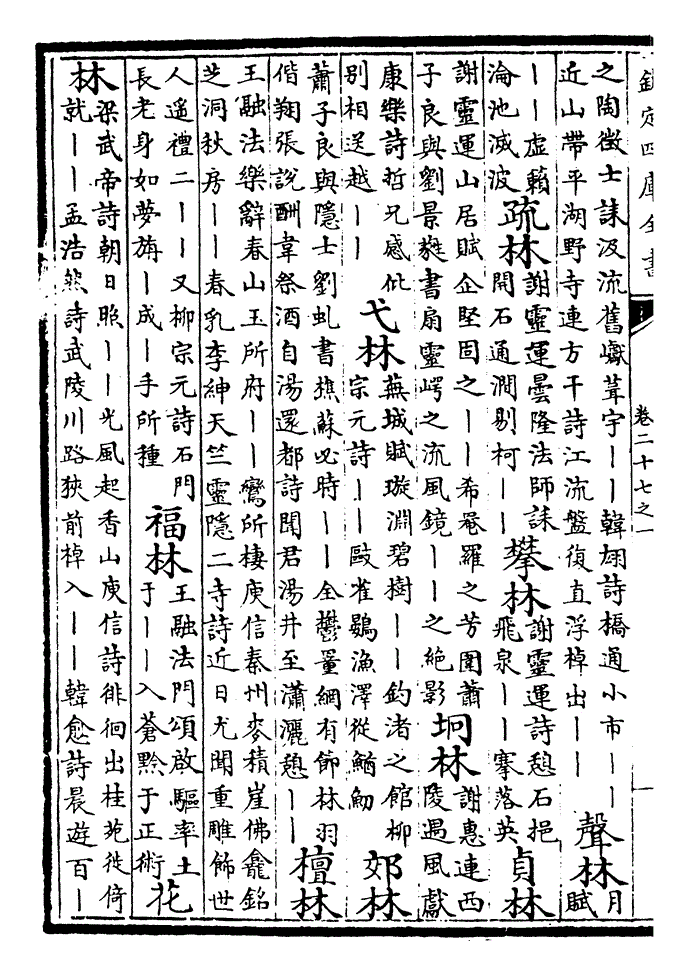 欽定四庫全書
卷二十七之一
之陶徵士誄汲流舊巘葺宇丨丨韓翃詩橋通小市丨丨
近山帶平湖野寺連方干詩江流盤復直浮棹出丨丨
聲林
月
賦
丨丨虛籟
淪池滅波
疏林
謝靈運曇隆法師誄
開石通澗剔柯丨丨
攀林
謝靈運詩憩石挹
飛泉丨丨搴落英
貞林
謝靈運山居賦企堅固之丨丨希菴羅之芳園蕭
子良與劉景蕤書扇靈崿之流風鏡丨丨之絶影
坰林
謝惠連西
陵遇風獻
康樂詩哲兄感仳
別相送越丨丨
弋林
蕪城賦璇淵碧樹丨丨釣渚之館柳
宗元詩丨丨敺雀鷃漁澤從鰌魛
郊林
蕭子良與隱士劉虬書樵蘇必時丨丨全鬱罿網有節林羽
偕翔張說酬韋祭酒自湯還都詩聞君湯井至瀟灑憩丨丨
檀林
王融法樂辭春山玉所府丨丨鸞所棲庾信秦州麥積崖佛龕銘
芝洞秋房丨丨春乳李紳天竺靈隱二寺詩近日尤聞重雕飾世
人遥禮二丨丨又柳宗元詩石門
長老身如夢旃丨成丨手所種
福林
王融法門頌啟驅率土
于丨丨入蒼黔于正術
花
林
梁武帝詩朝日照丨丨光風起香山庾信詩徘徊出桂苑徙倚
就丨丨孟浩然詩武陵川路狹前棹入丨丨韓愈詩晨遊百丨